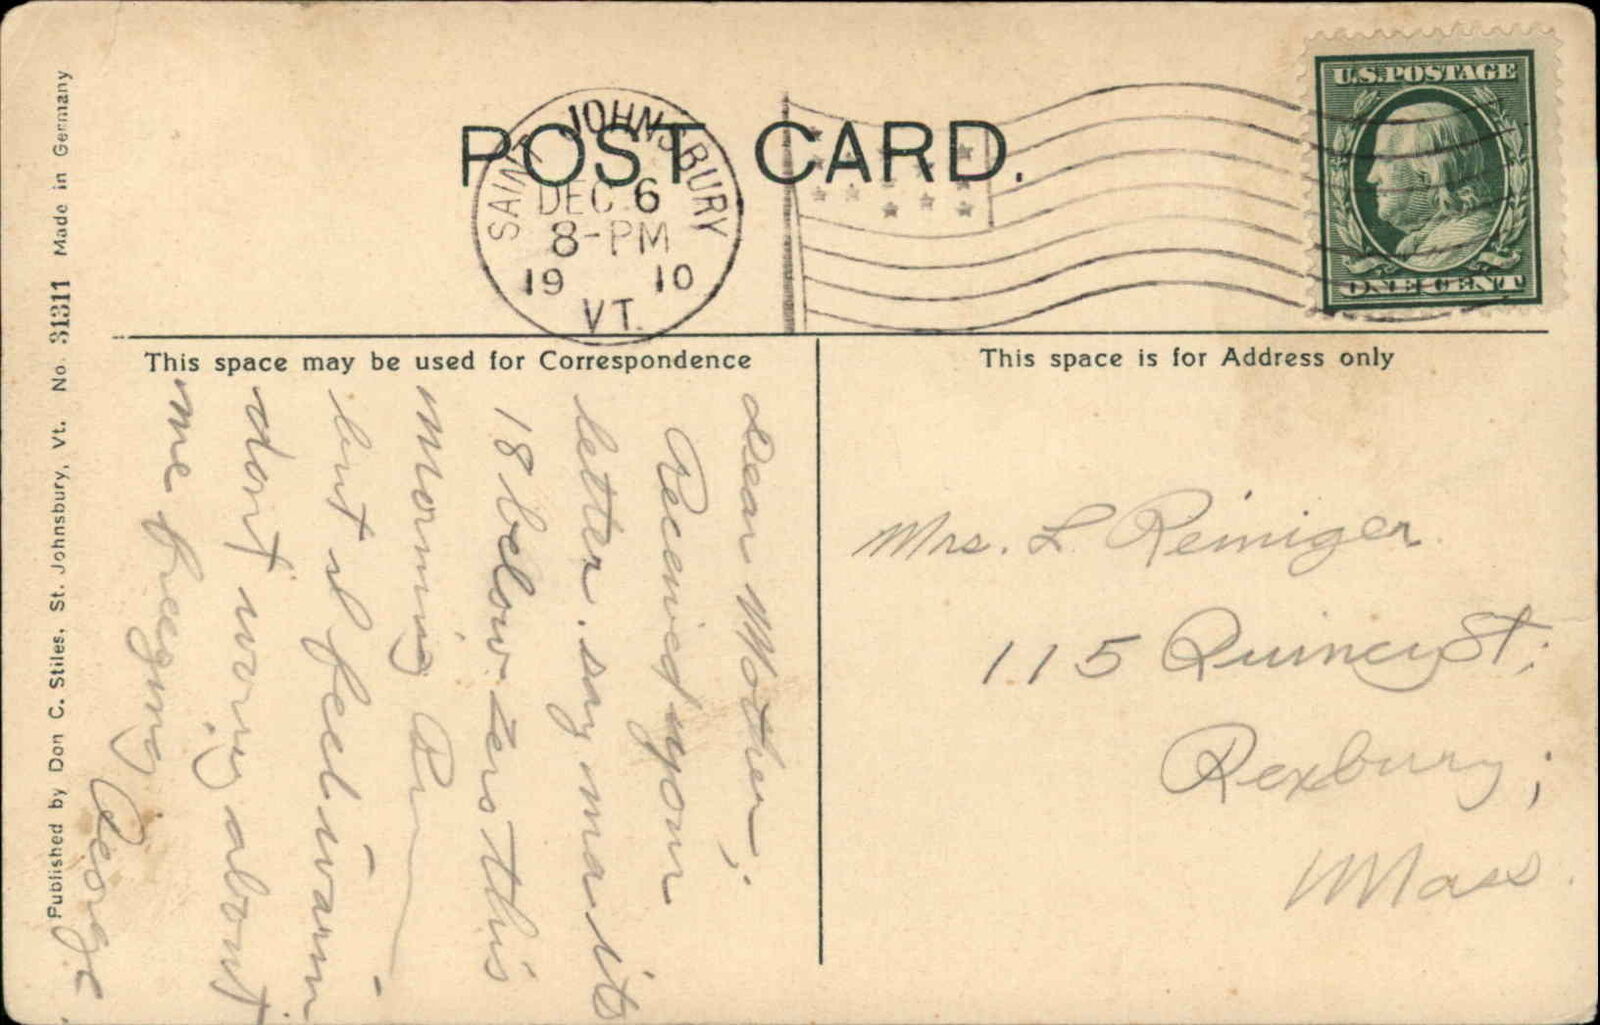 POST CARD.
SAINT JOHNSBURY
DEC 6
8-PM
19 10
VT.
U.S. POSTAGE
ONE CENT
This space may be used for Correspondence
This space is for Address only
Dear Mother,
Received your
letter. say ma its
18 below zero this
morning Brr
but I feel warm
dont worry about
me freezing
George
Mrs. L Reiniger
115 Quincy St,
Roxbury,
Mass.
Published by Don C. Stiles, St. Johnsbury, Vt. No. 31311 Made in Germany